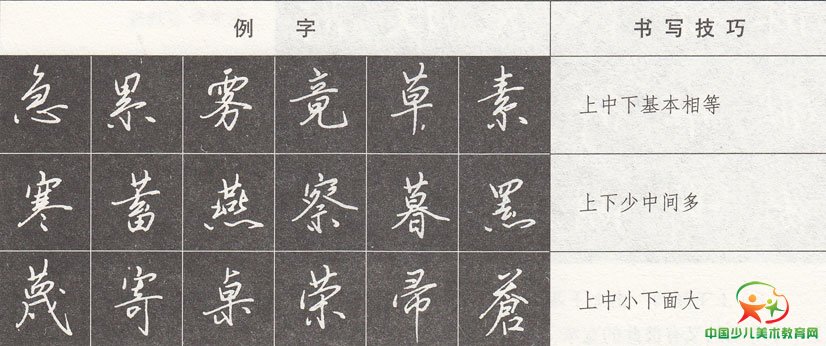 例 字 书写技巧
急 累 雾 竟 草 素 上中下基本相等
寒 蓄 燕 察 暮 黑 上下少中间多
蔑 寄 桌 荣 帚 蒼 上中小下面大
中国少儿美术教育网